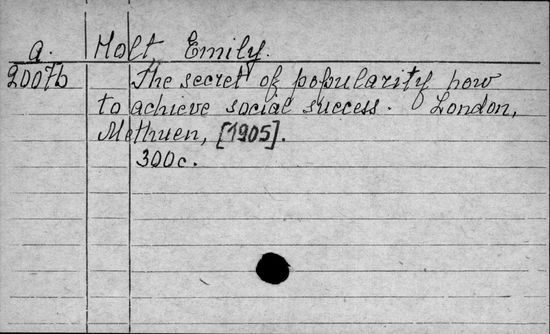 a. Holt, Emily.
20076 The secret of popularity how
to achieve social success. London,
Methuen, [1905].
300c.